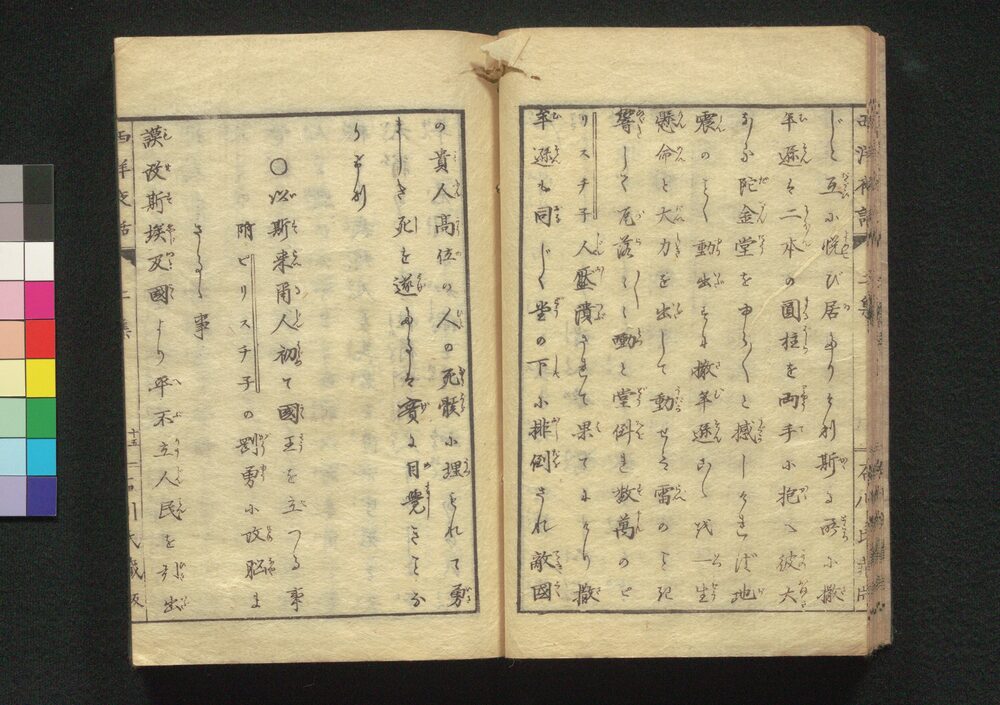 じと互に悦び居たりける斯る時に撒
年遜は二本の圓柱を両手に抱へ彼大
なる陀金堂をゆら〱と撼しければ地
震のごとく動出せば撒年遜は
懸命と大力を出して動せば雷のごとき
響して瓦落〱〱動と堂倒れ数萬のヒ
リスチ子人壓潰されて果てにけり撒
年遜も同じく堂の下に排倒され敵國
の貴人高位の人の死骸に埋もれて勇
ましき死を遂たるは實に目覚きことな
りける
○以斯来爾人初て國王を立つる事
附ヒリスチ子の剛勇に攻脳ま
さるゝ事
謨改斯埃及國より平不立人民を引出
西洋夜話
二集
石川氏蔵版
西洋夜話
二集
十五
石川氏蔵版